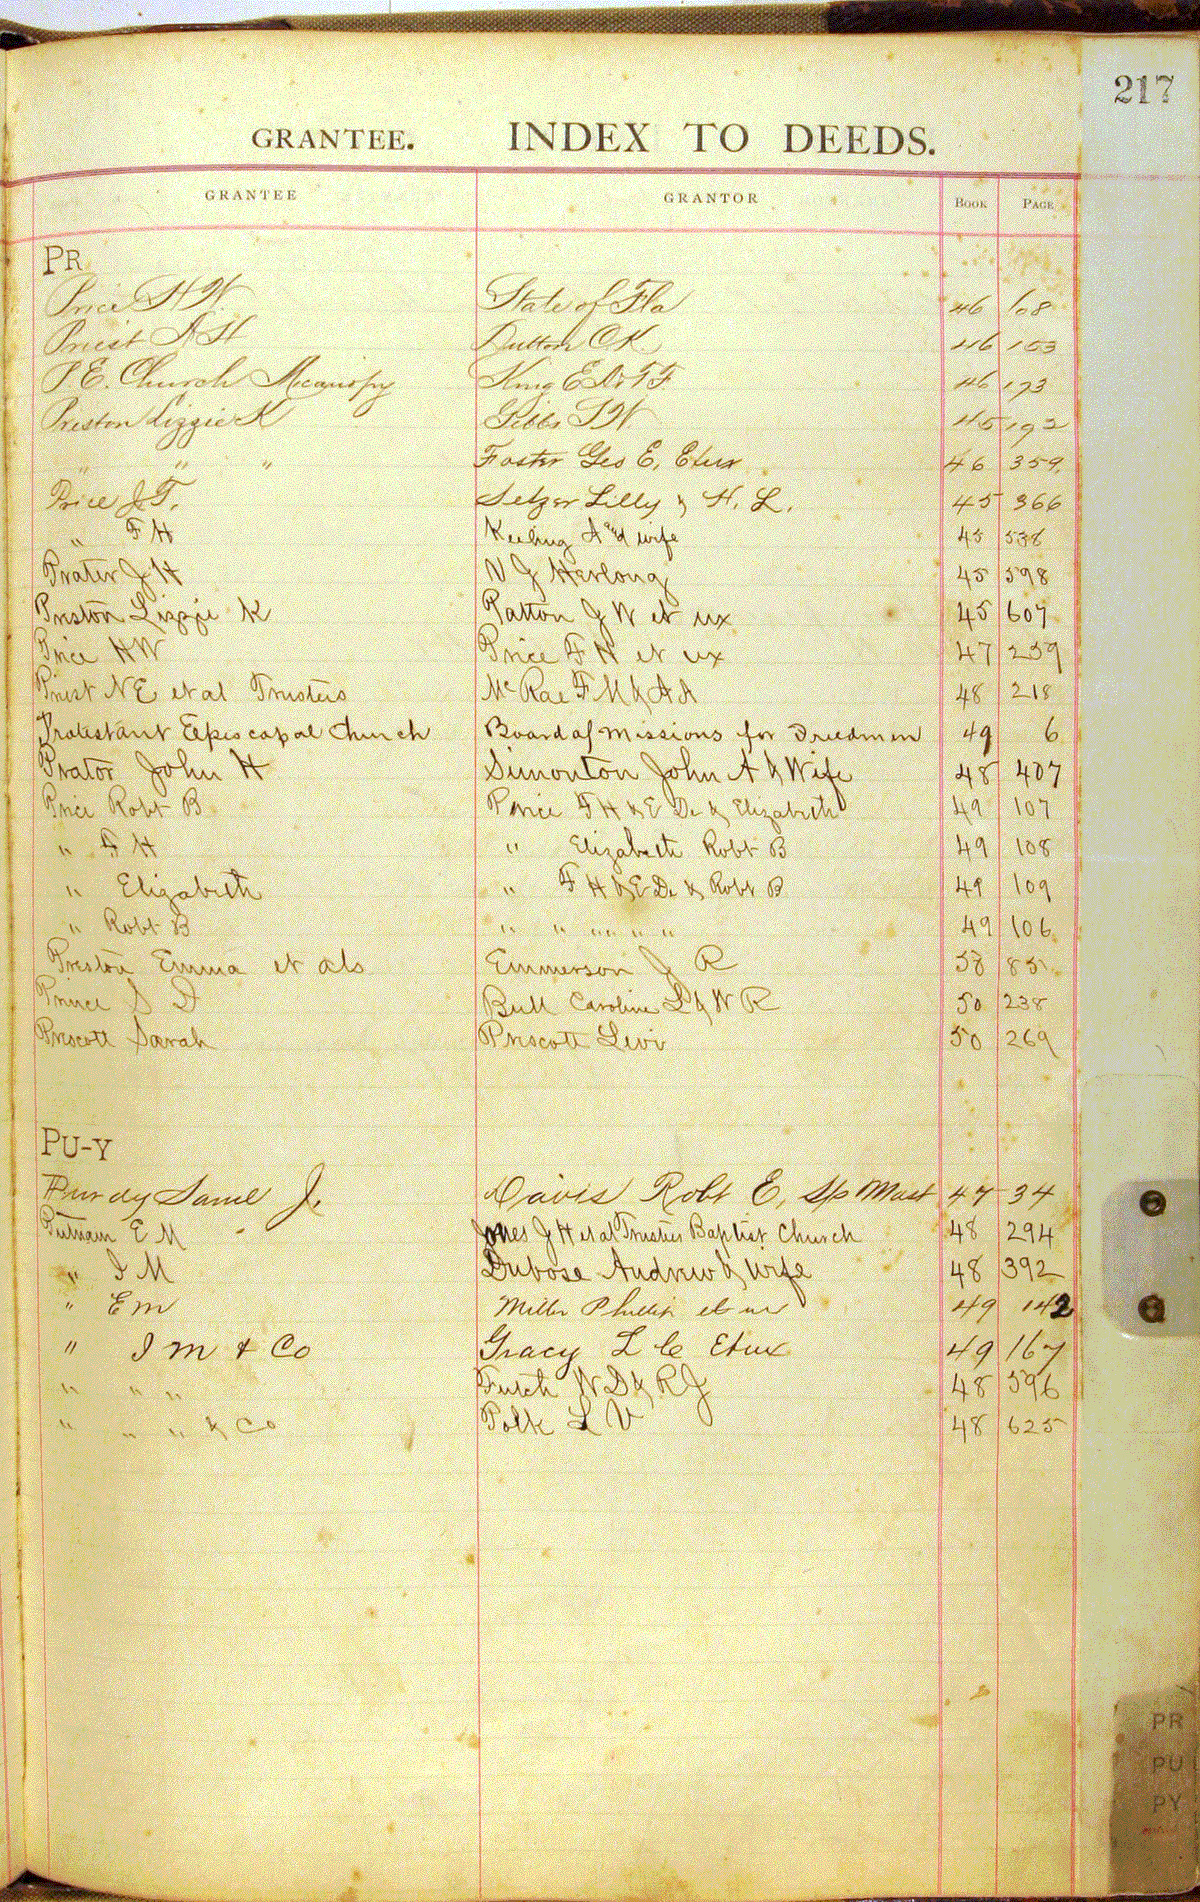 217
GRANTEE. INDEX TO DEEDS.
GRANTEE GRANTOR BOOK PAGE
PR
Price H W State of Fla 46 108
Priest State 46 153
P E. Church Micanopy King E D & F F 46 173
Preston Lizzie K Gibbs T W 45 192
" " " Foster Geo E, Etux 46 359
Price J T. Setzer Lilly & H. L. 45 366
" F H Keeling A and wife 45 538
Prater J H V J Herlong 45 598
Preston Lizzie K Patton J W et ux 45 607
Price H W Price F H et ux 47 239
Priest N E et al Trustees McRae F M & A A 48 218
Protestant Episcopal Church Board of Missions for Freedmen 49 6
Prator John H Simonton John A & Wife 48 407
Price Robt B Price F H & E D & Elizabeth 49 107
" F H " Elizabeth Robt B 49 108
" Elizabeth " F H & E D & Robt B 49 109
" Robt B " " " " " " 49 106
Preston Emma et als Emmerson J R 851
Prince S D Bull Caroline L & W R 50 238
Prescott Sarah Prescott Levi 50 269
PU-Y
Purdy Saml J. Davis Robt E, Sp Mast 47 34
Putnam E M Jones J H et al Trustees Baptist Church 48 294
" I M Dubose Andrew & Wife 48 392
" E M Miller Phillip et ux 49 142
" I M & Co Gracy L C Etux 49 167
" " " Futch W D & R J 48 596
" " " & Co Polk L V 48 625
PR
PU
PY